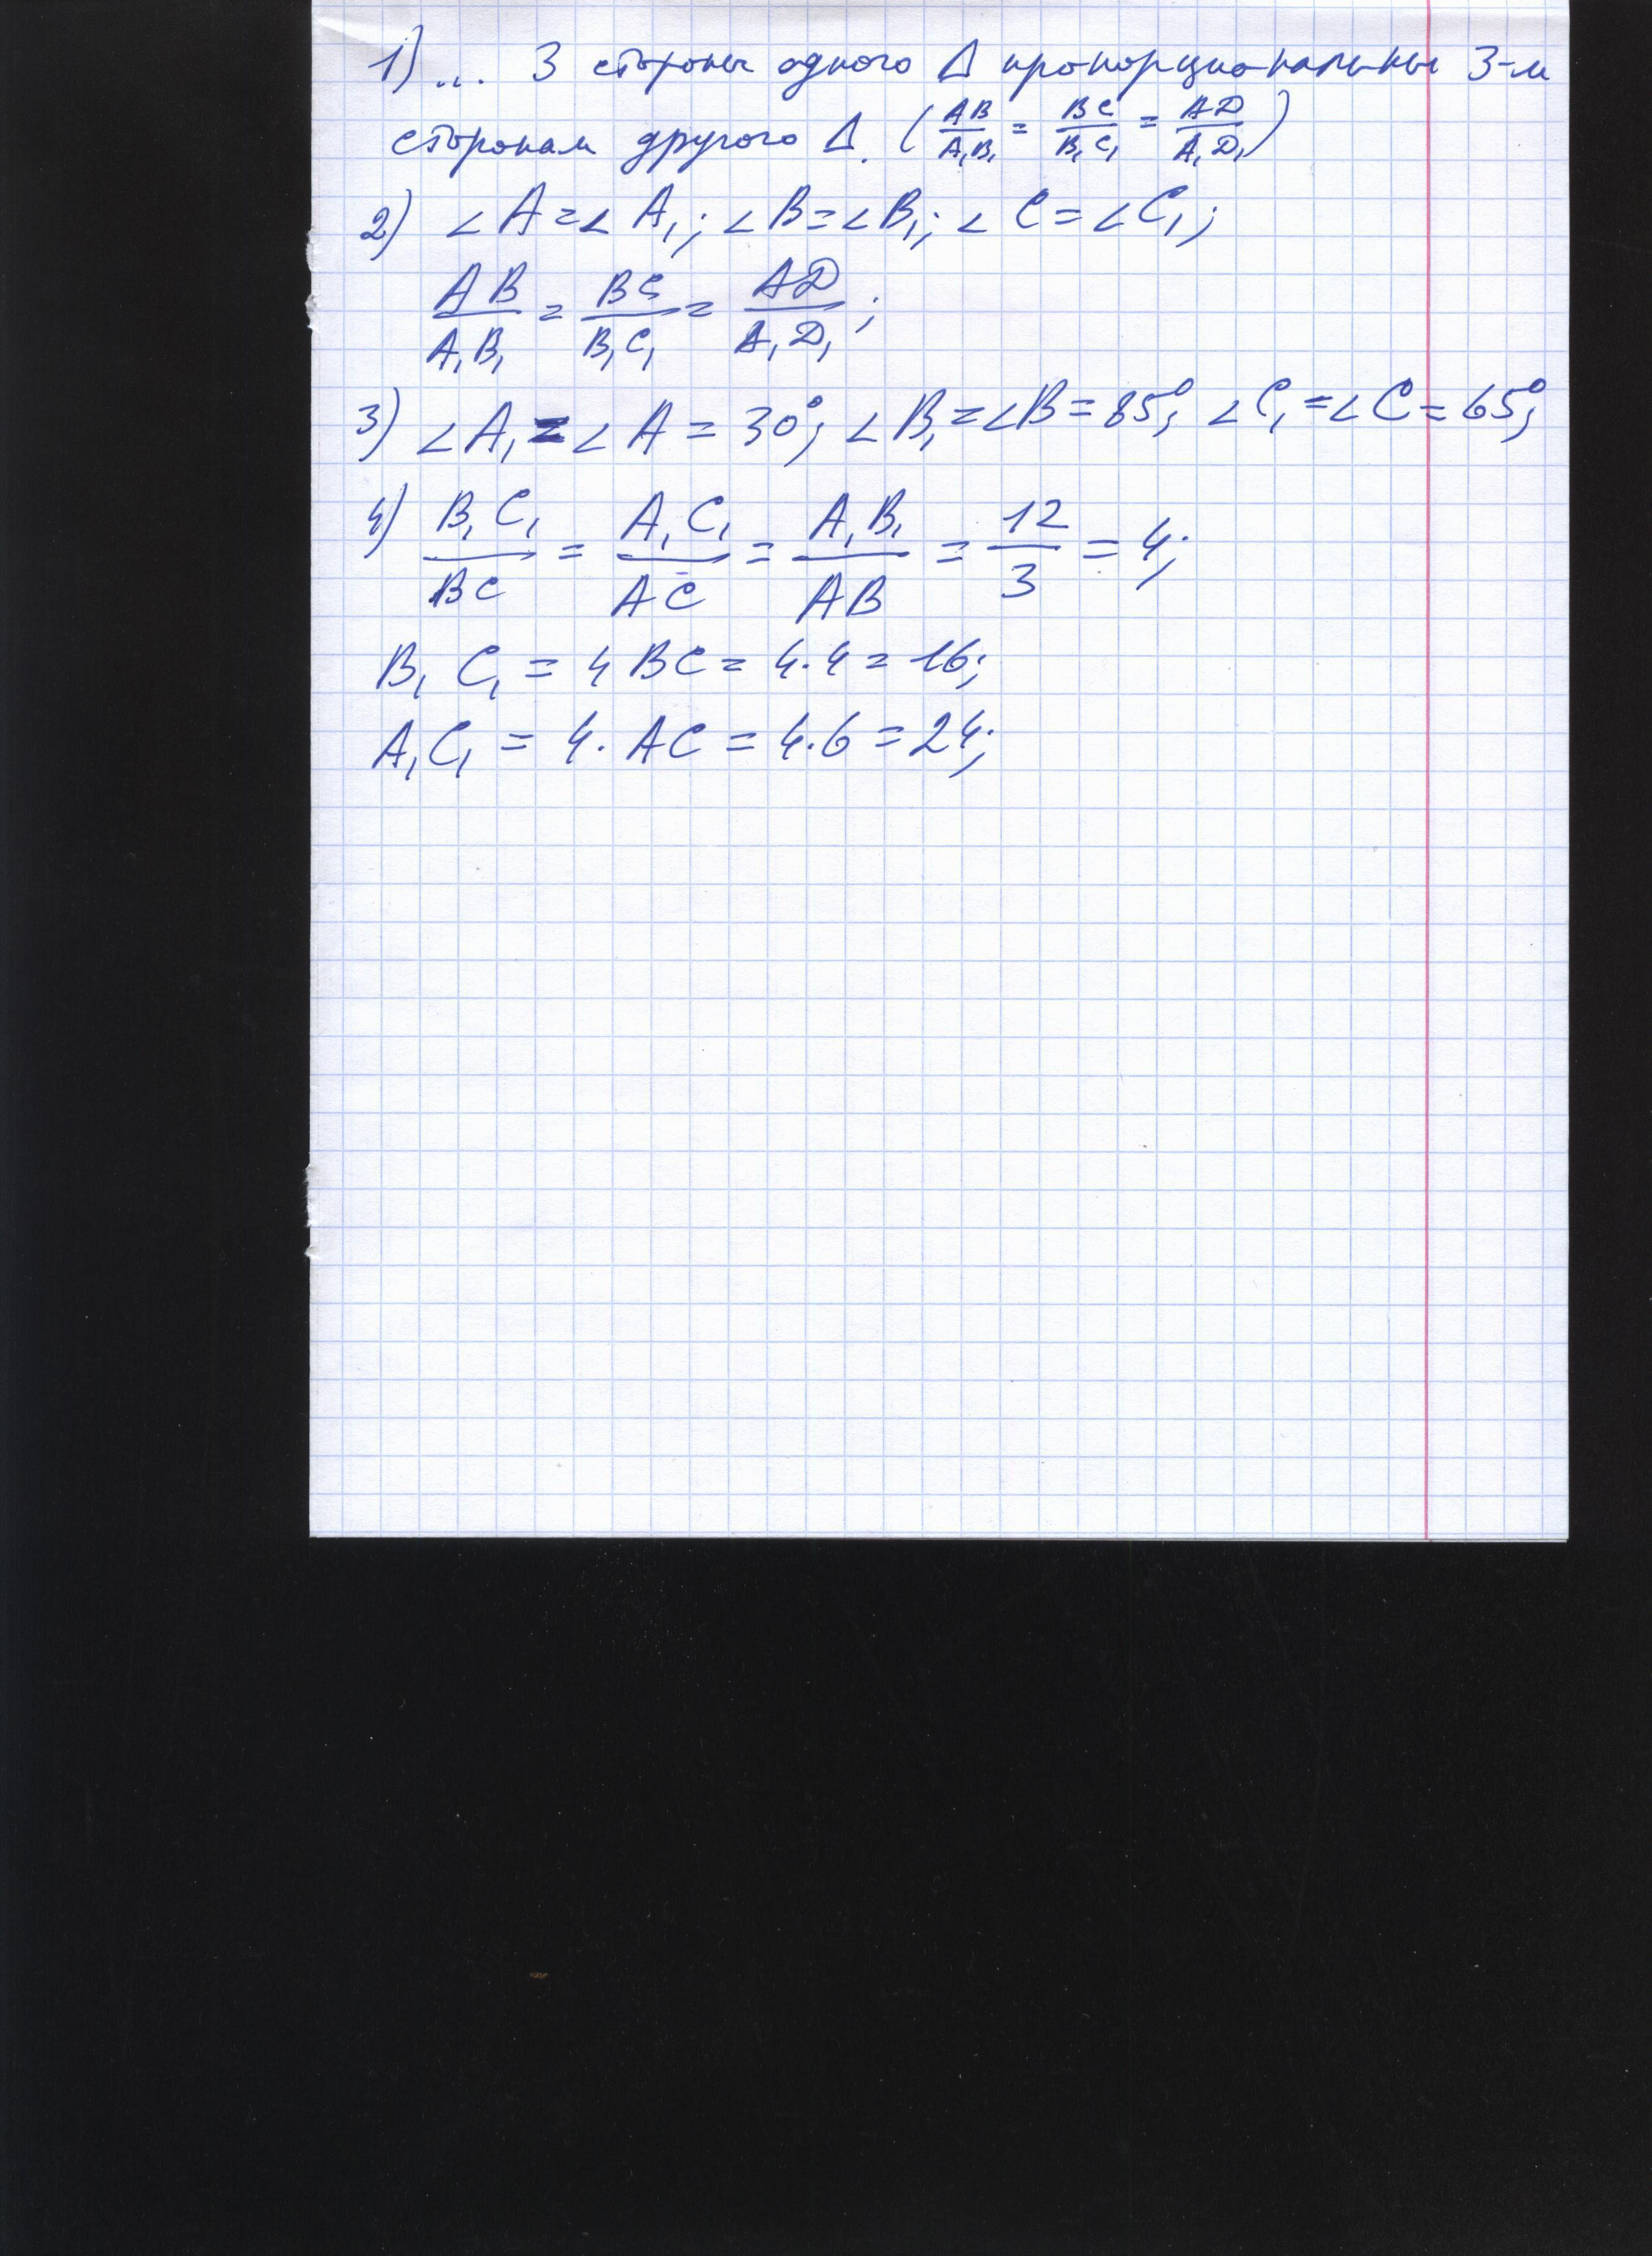 1) ... 3 стороны одного Δ пропорциональны 3-м
сторонам другого Δ. (AB/A₁B₁ = BC/B₁C₁ = AD/A₁D₁)
2) ∠A=∠A₁; ∠B=∠B₁; ∠C=∠C₁;
AB/A₁B₁ = BC/B₁C₁ = AD/A₁D₁;
3) ∠A₁=∠A=30°; ∠B₁=∠B=85°; ∠C₁=∠C=65°;
4) B₁C₁/BC = A₁C₁/AC = A₁B₁/AB = 12/3 = 4;
B₁C₁ = 4BC = 4·4 = 16;
A₁C₁ = 4·AC = 4·6 = 24;